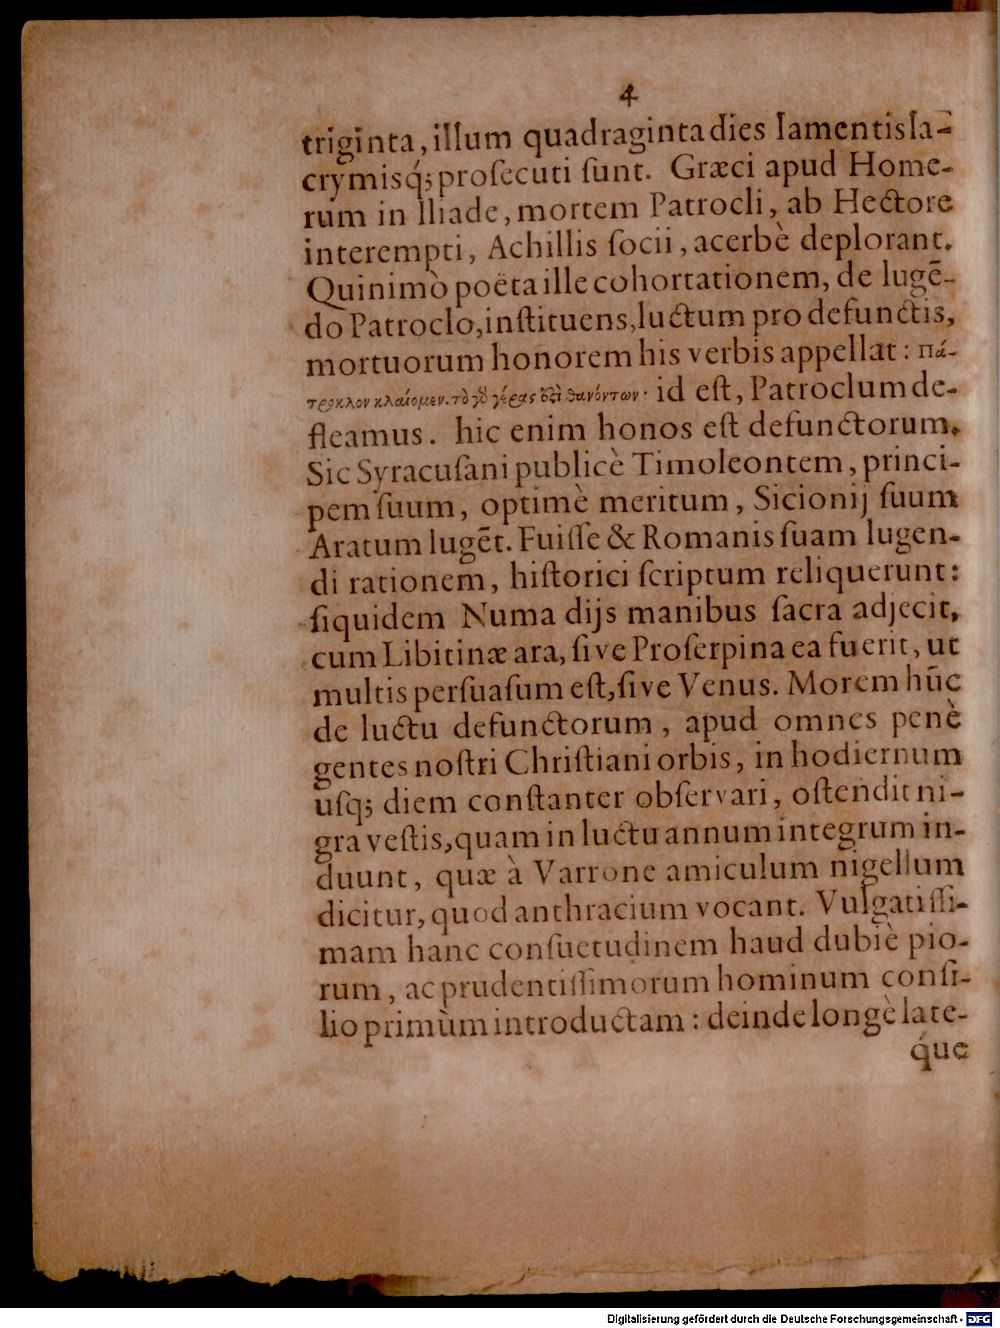 4
triginta, illum quadraginta dies lamentis la-
crymisq́; proſecuti ſunt. Græci apud Home-
rum in Iliade, mortem Patrocli, ab Hectore
interempti, Achillis ſocii, acerbè deplorant.
Quinimò poëta ille cohortationem, de lugē-
do Patroclo, inſtituens, luctum pro defunctis,
mortuorum honorem his verbis appellat: πά-
τροκλον κλαίομεν. τὸ γὸ γέρας ὅςὶ θανόντων· id eſt, Patroclum de-
fleamus. hic enim honos eſt defunctorum.
Sic Syracuſani publicè Timoleontem, princi-
pem ſuum, optimè meritum, Sicionij ſuum
Aratum lugēt. Fuiſſe & Romanis ſuam lugen-
di rationem, hiſtorici ſcriptum reliquerunt:
ſiquidem Numa dijs manibus ſacra adjecit,
cum Libitinæ ara, ſive Proſerpina ea fuerit, ut
multis perſuaſum eſt, ſive Venus. Morem hūc
de luctu defunctorum, apud omnes penè
gentes noſtri Chriſtiani orbis, in hodiernum
uſq; diem conſtanter obſervari, oſtendit ni-
gra veſtis, quam in luctu annum integrum in-
duunt, quæ à Varrone amiculum nigellum
dicitur, quod anthracium vocant. Vulgatiſſi-
mam hanc conſuetudinem haud dubiè pio-
rum, ac prudentiſſimorum hominum conſi-
lio primùm introductam: deinde longè late-
q́ue
Digitalisierung gefördert durch die Deutsche Forschungsgemeinschaft - DFG